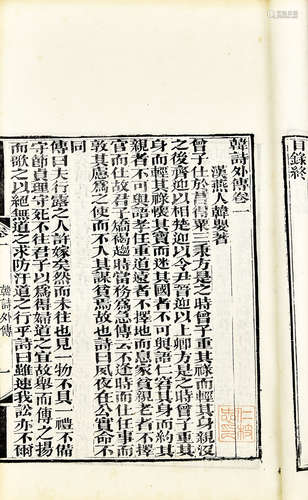 目錄終
韓詩外傳卷一
漢燕人韓嬰著
曾子仕於莒得粟三秉方是之時曾子重其祿而輕其身親沒
之後齊迎以相楚迎以令尹晉迎以上卿方是之時曾子重其
身而輕其祿懷其寶而迷其國者不可與語仁窘其身而約其
親者不可與語孝任重道遠者不擇地而息家貧親老者不擇
官而仕故君子矯褐趨時當務爲急傳云不逢時而仕任事而
敦其慮爲之使而不入其謀貧焉故也詩曰夙夜在公實命不
同
傳曰夫行露之人許嫁矣然而未往也見一物不具一禮不備
守節貞理守死不往君子以爲得婦道之宜故舉而傳之揚
而歌之以絕無道之求防汙道之行乎詩曰雖速我訟亦不爾
韓詩外傳